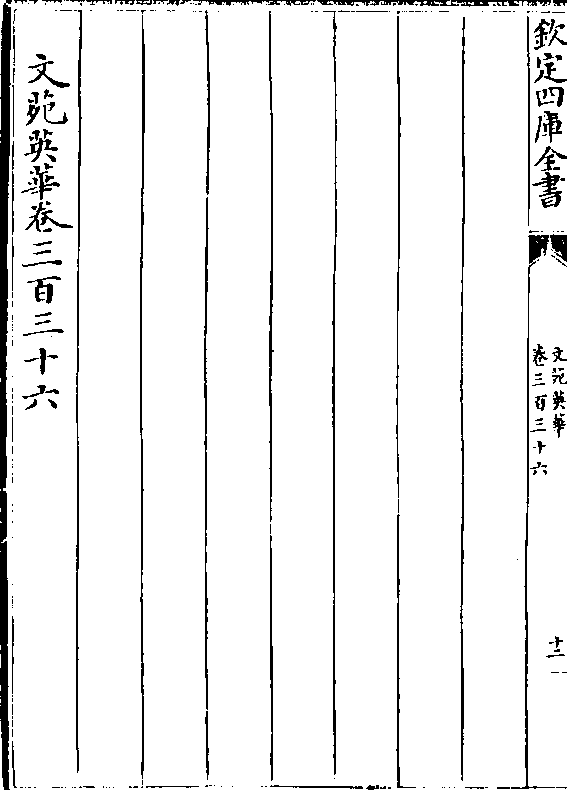 欽定四庫全書
文苑英華
卷三百三十六
十二
文苑英華卷三百三十六